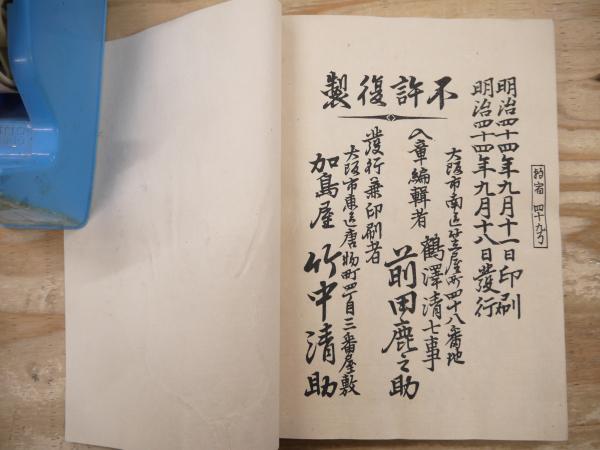 明治四十四年九月十一日印刷
明治四十四年九月十八日發行
不許復製
大阪市南區笠屋町四十八番地
入章編輯者
鶴澤清七事
前田鹿之助
發行兼印刷者
大阪市東區唐物町四丁目三番屋敷
加島屋 竹中清助